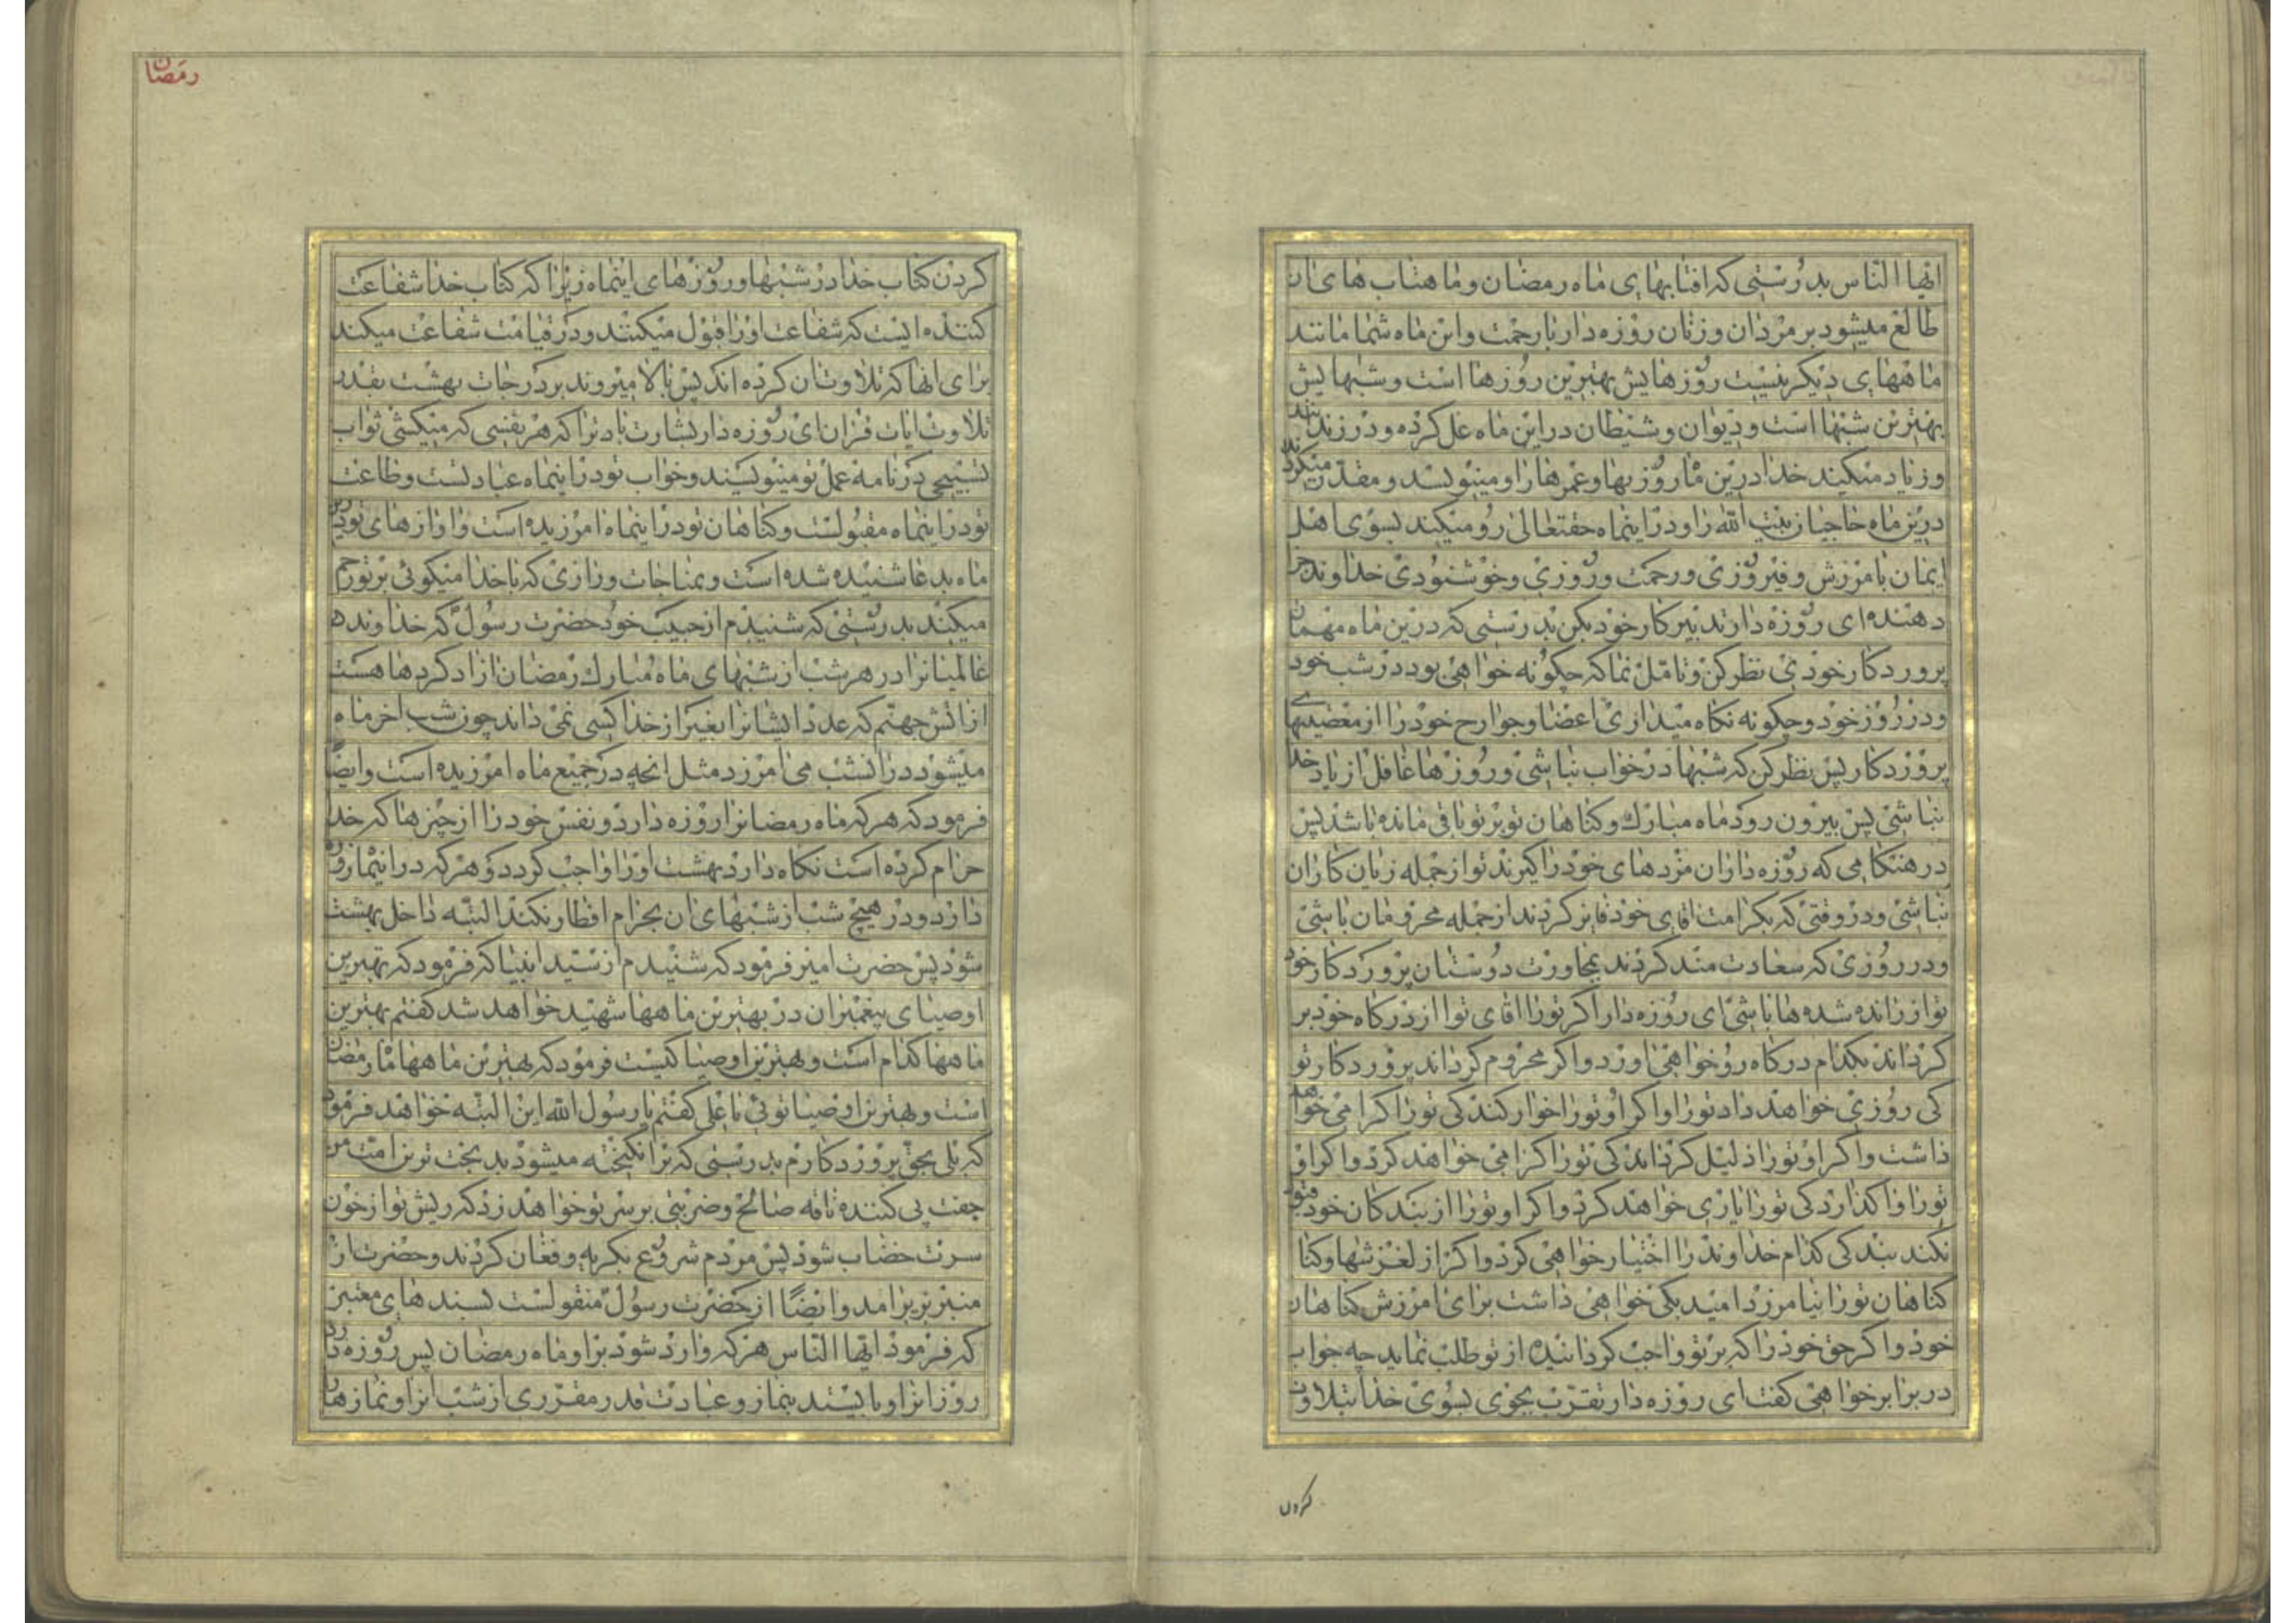 ایها الناس بدرستی که افتابهای ماه رمضان و ماهتاب های ان
طالع میشود بر مردان و زنان روزه دار با رحمت و این ماه شما مانند
ماههای دیگر نیست روزهایش بهترین روزها است و شبهایش
بهترین شبها است و دیوان و شیطان در این ماه غل کرده و در زندانند
و زیاد میکند خدا درین ماه روزیها و عمرها را و مینویسد و مقدر میکرداند
درین ماه حاجیان بیت الله را و در اینماه حقتعالی رو میکند بسوی اهل
ایمان بامرزش و فیروزی و رحمت و روزی و خوشنودی خداوند جزا
دهنده ای روزه دار تدبیر کار خود بکن بدرستی که درین ماه مهمان
پروردکار خودی نظر کن و تامل نما که چکونه خواهی بود در شب خود
و در روز خود و چکونه نکاه میداری اعضا و جوارح خود را از معصیتهای
پروردکار پس نظر کن که شبها در خواب نباشی و روزها غافل از یاد خدا
نباشی پس بیرون رود ماه مبارك و کناهان تو بر تو باقی مانده باشد پس
در هنکامی که روزه داران مزدهای خود را کیرند تو از جمله زیان کاران
نباشی و در وقتی که بکرامت اقای خود فایز کردند از جمله محرومان باشی
و در روزی که سعادت مند کردند بمجاورت دوستان پروردکار خود
تو از رانده شده ها باشی ای روزه دار اکر تو را اقای تو از درکاه خود بر
کرداند بکدام درکاه رو خواهی اورد و اکر محروم کرداند پروردکار تو
کی روزی خواهد داد تو را و اکر او تو را خوار کند کی تو را کرامی خواهد
داشت و اکر او تو را ذلیل کرداند کی تو را کرامی خواهد کرد و اکر او
تو را واکذارد کی تو را یاری خواهد کرد و اکر او تو را از بندکان خود قبول
نکند بندکی کدام خداوند را اختیار خواهی کرد و اکر از لغزشها و کنا
کناهان تو را نیامرزد امید بکی خواهی داشت برای امرزش کناهان
خود و اکر حق خود را که بر تو واجب کردانیده از تو طلب نماید چه جواب
در برابر خواهی کفت ای روزه دار تقرب بجوی بسوی خدا بتلاوت
کردن
رمضان
کردن کتاب خدا در شبها و روزهای اینماه زیرا که کتاب خدا شفاعت
کننده ایست که شفاعت او را قبول میکنند و در قیامت شفاعت میکند
برای انها که تلاوتان کرده اند پس بالا میروند بر درجات بهشت بقدر
تلاوت ایات قران ای روزه دار بشارت باد ترا که هر نفسی که میکشی ثواب
تسبیحی در نامه عمل تو مینویسند و خواب تو در اینماه عبادتست و طاعت
تو در اینماه مقبولست و کناهان تو در اینماه امرزیده است و اوازهای تو درین
ماه بدعا شنیده شده است و بمناجات و رازی که با خدا میکوئی بر تو رحم
میکند بدرستی که شنیدم از حبیب خود حضرت رسول که خداوند
عالمیانرا در هر شب از شبهای ماه مبارك رمضان ازاد کردها هست
از اتش جهنم که عدد ایشانرا بغیر از خدا کسی نمی داند چون شب اخر ماه
میشود در انشب می امرزد مثل انچه در جمیع ماه امرزیده است و ایضًا
فرمود که هر که ماه رمضانرا روزه دارد و نفس خود را از چیزها که خدا
حرام کرده است نکاه دارد بهشت او را واجب کردد و هر که در اینماه روزه
دارد و در هیچ شب از شبهای ان بحرام افطار نکند البته داخل بهشت
شود پس حضرت امیر فرمود که شنیدم از سید انبیا که فرمود که بهترین
اوصیای پیغمبران در بهترین ماهها شهید خواهد شد کفتم بهترین
ماهها کدام است و بهترین اوصیا کیست فرمود که بهترین ماهها ماه رمضان
است و بهترین اوصیا توئی یا علی کفتم یا رسول الله این البته خواهد فرمود
که بلی بحق پروردکارم بدرستی که برانکیخته میشود بدبخت ترین امت من
جفت پی کننده ناقه صالح و ضربتی بر سر تو خواهد زد که ریش تو از خون
سرت خضاب شود پس مردم شروع بکریه و فغان کردند و حضرت از
منبر بزیر امد و ایضًا از حضرت رسول منقولست بسندهای معتبر
که فرمود ایها الناس هر که وارد شود بر او ماه رمضان پس روزه دارد
روز انرا و بایستد بنماز و عبادت قدر مقرری از شب انرا و نمازها